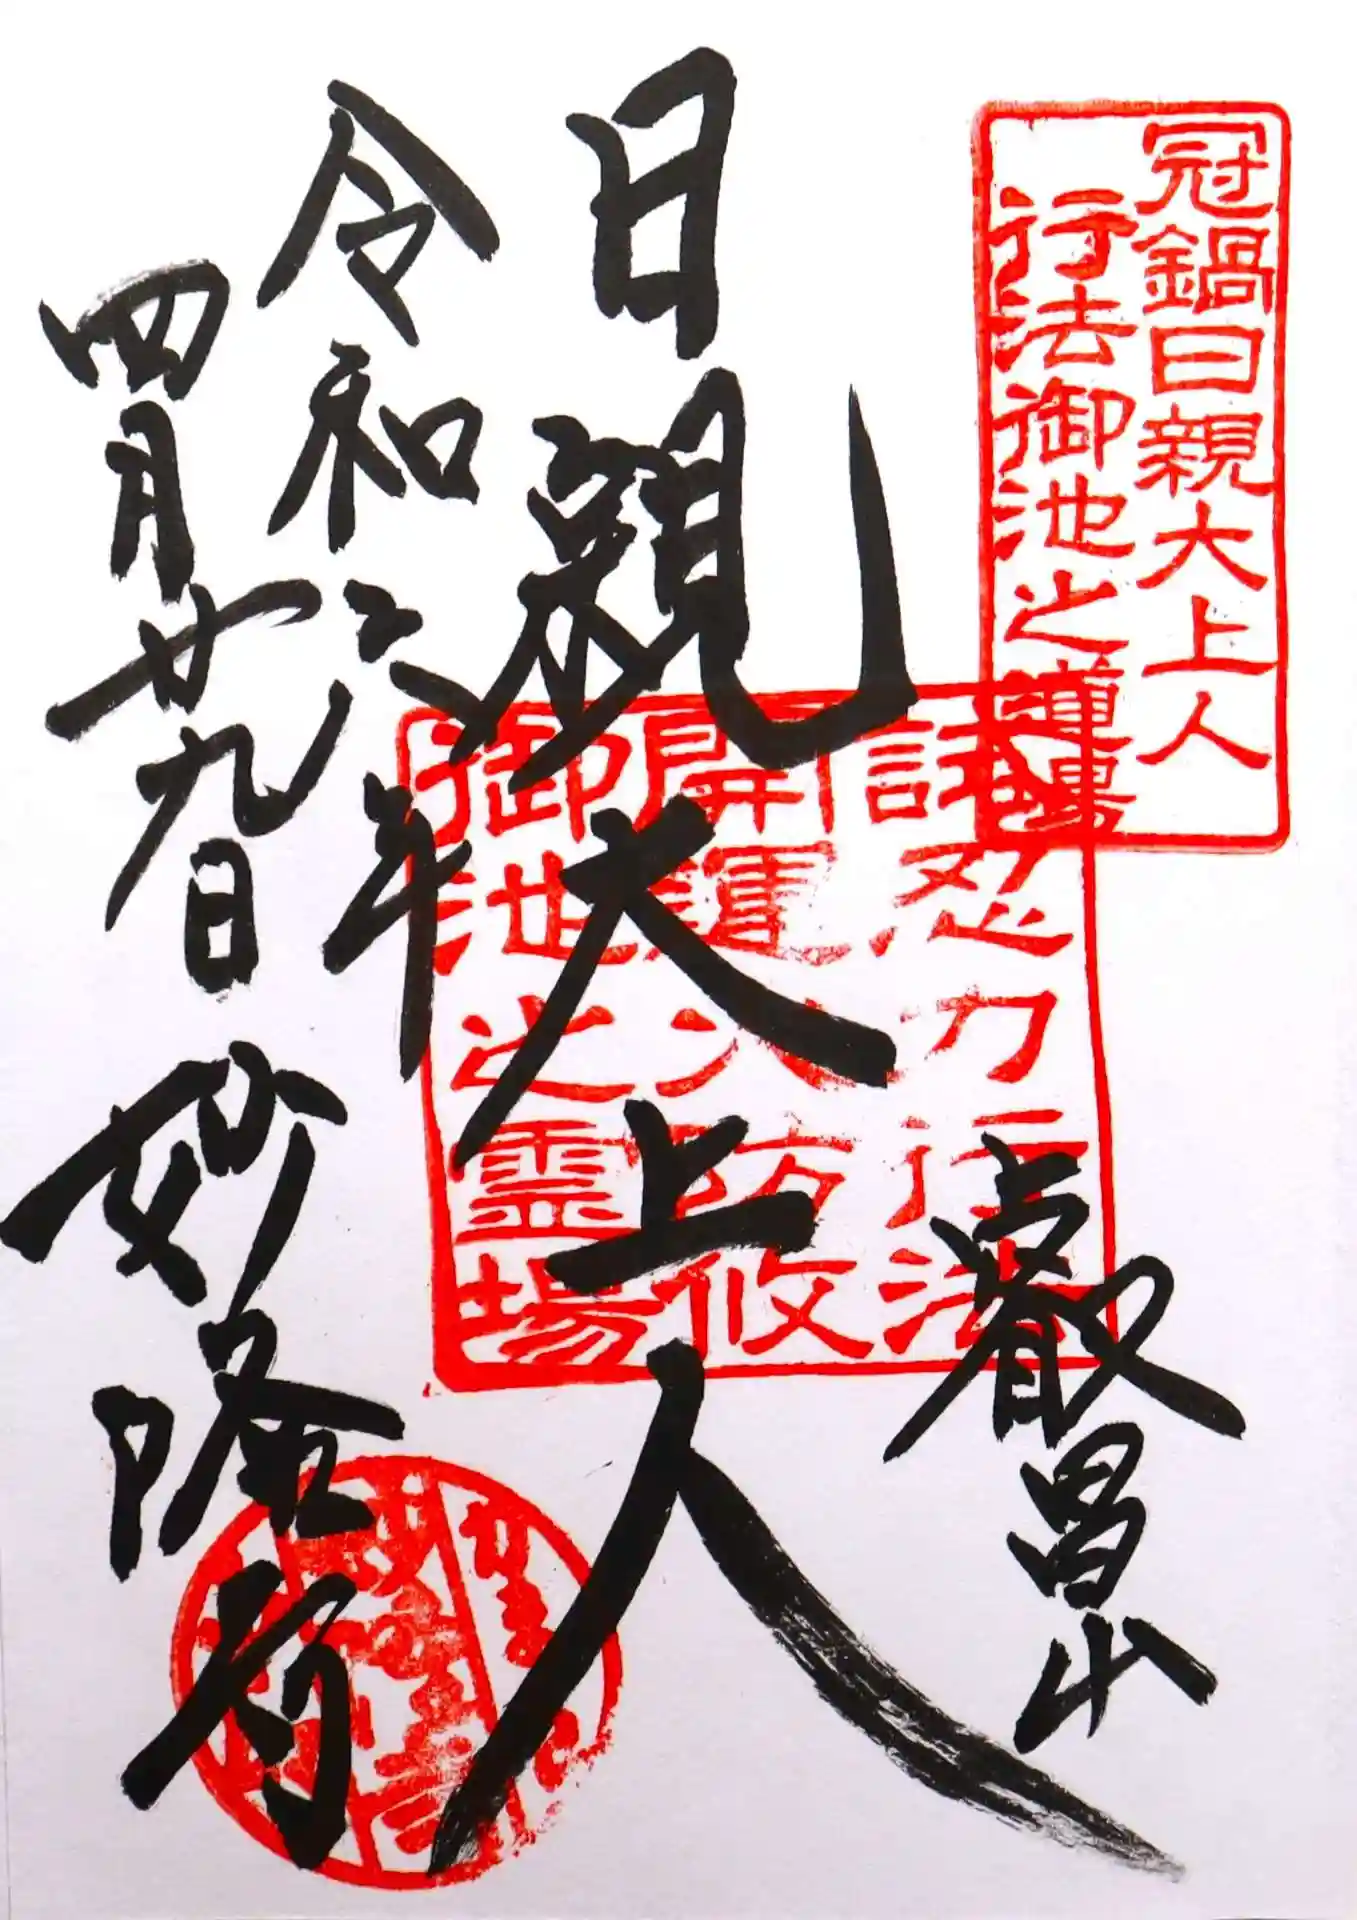 冠鍋日親大上人
行法御池之道場
叡昌山
日親大上人
試忍力行法
開運火防攸
御池之霊場
令和六年
四月廿九日 妙隆寺